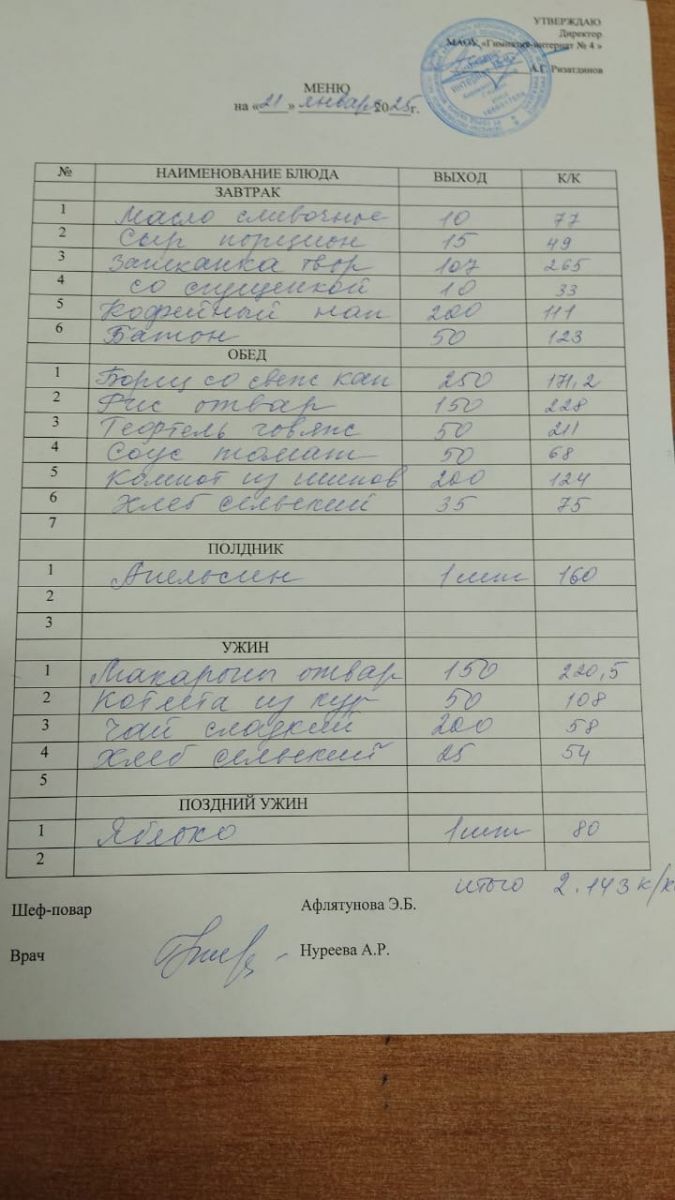 УТВЕРЖДАЮ
Директор
МАОУ «Гимназия-интернат № 4»
А.Г. Ризатдинов
МЕНЮ
на «21» январь 2025г.
№ НАИМЕНОВАНИЕ БЛЮДА ВЫХОД К/К
ЗАВТРАК
1 Масло сливочное 10 77
2 Сыр порцион 15 49
3 Запеканка твор 107 265
4 со сгущенкой 10 33
5 Кофейный нап 200 111
6 Батон 50 123
ОБЕД
1 Борщ со свеж кап 250 171,2
2 Рис отвар 150 228
3 Тефтель говяж 50 211
4 Соус томат 50 68
5 Компот из шипов 200 124
6 Хлеб сельский 35 75
7
ПОЛДНИК
1 Апельсин 1 шт 160
2
3
УЖИН
1 Макароны отвар 150 220,5
2 Котлета из кур 50 108
3 Чай сладкий 200 58
4 Хлеб сельский 25 54
5
ПОЗДНИЙ УЖИН
1 Яблоко 1 шт 80
2
итого 2.143 к/к
Шеф-повар Афлятунова Э.Б.
Врач Нуреева А.Р.